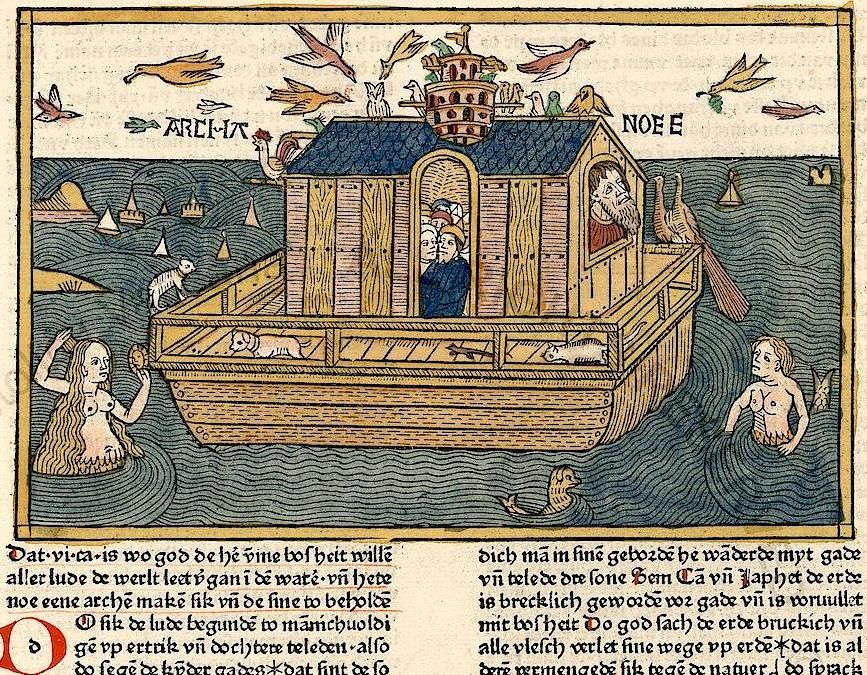 ARCHA
NOEE
Dat·vi·ca·is wo god de hē vm̄e bosheit willē
aller lude de werlt leet v̄gan ī dē watē·vn̄ hete
noe eene archē makē sik vn̄ de sine to beholdē
DO sik de lude begundē to mānichuoldi
gē vp ertrik vn̄ dochtere teleden·also
do segē de kȳder gades*dat sint de so
dich mā in sinē gebordē he wāderde myt gade
vn̄ telede dre sone Sem Cā vn̄ Japhet de erde
is brecklich gewordē vor gade vn̄ is voruullet
mit bosheit Do god sach de erde bruckich vn̄
alle vlesch verlet sine wege vp erdē*dat is al
derē vermengedē sik tegē de natuer do sprack